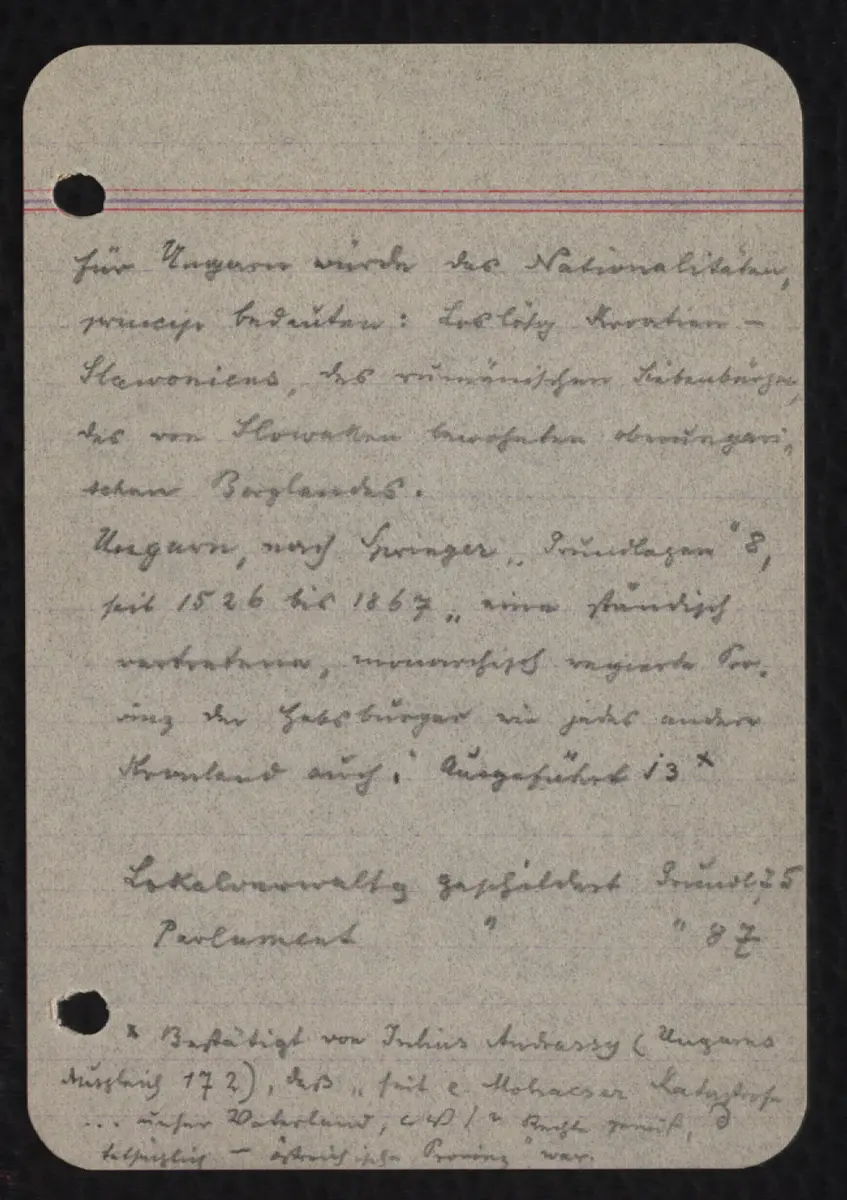 für Ungarn würde das Nationalitäten„
princip bedeuten: Loslösg Kroatien –
Slawoniens, des rumänischen Siebenbürgen,
des von Slowaken bewohnten oberungari„
schen Berglandes.
Ungarn, nach Springer „Grundlagen“ 8,
seit 1526 bis 1867 „eine ständisch
vertretene, monarchisch regierte Pro„
vinz der Habsburger wie jedes andere
Kronland auch." Ausgeführt 13 x
Lokalverwaltg geschildert Grundl 75
Parlament " " 87
x Bestätigt von Julius Andrassy (Ungarns
Ausgleich 172), daß „seit d Mohacser Katastrofe
... unser Vaterland, Rechte gemäß,
tatsächlich – östreichische Provinz" war.